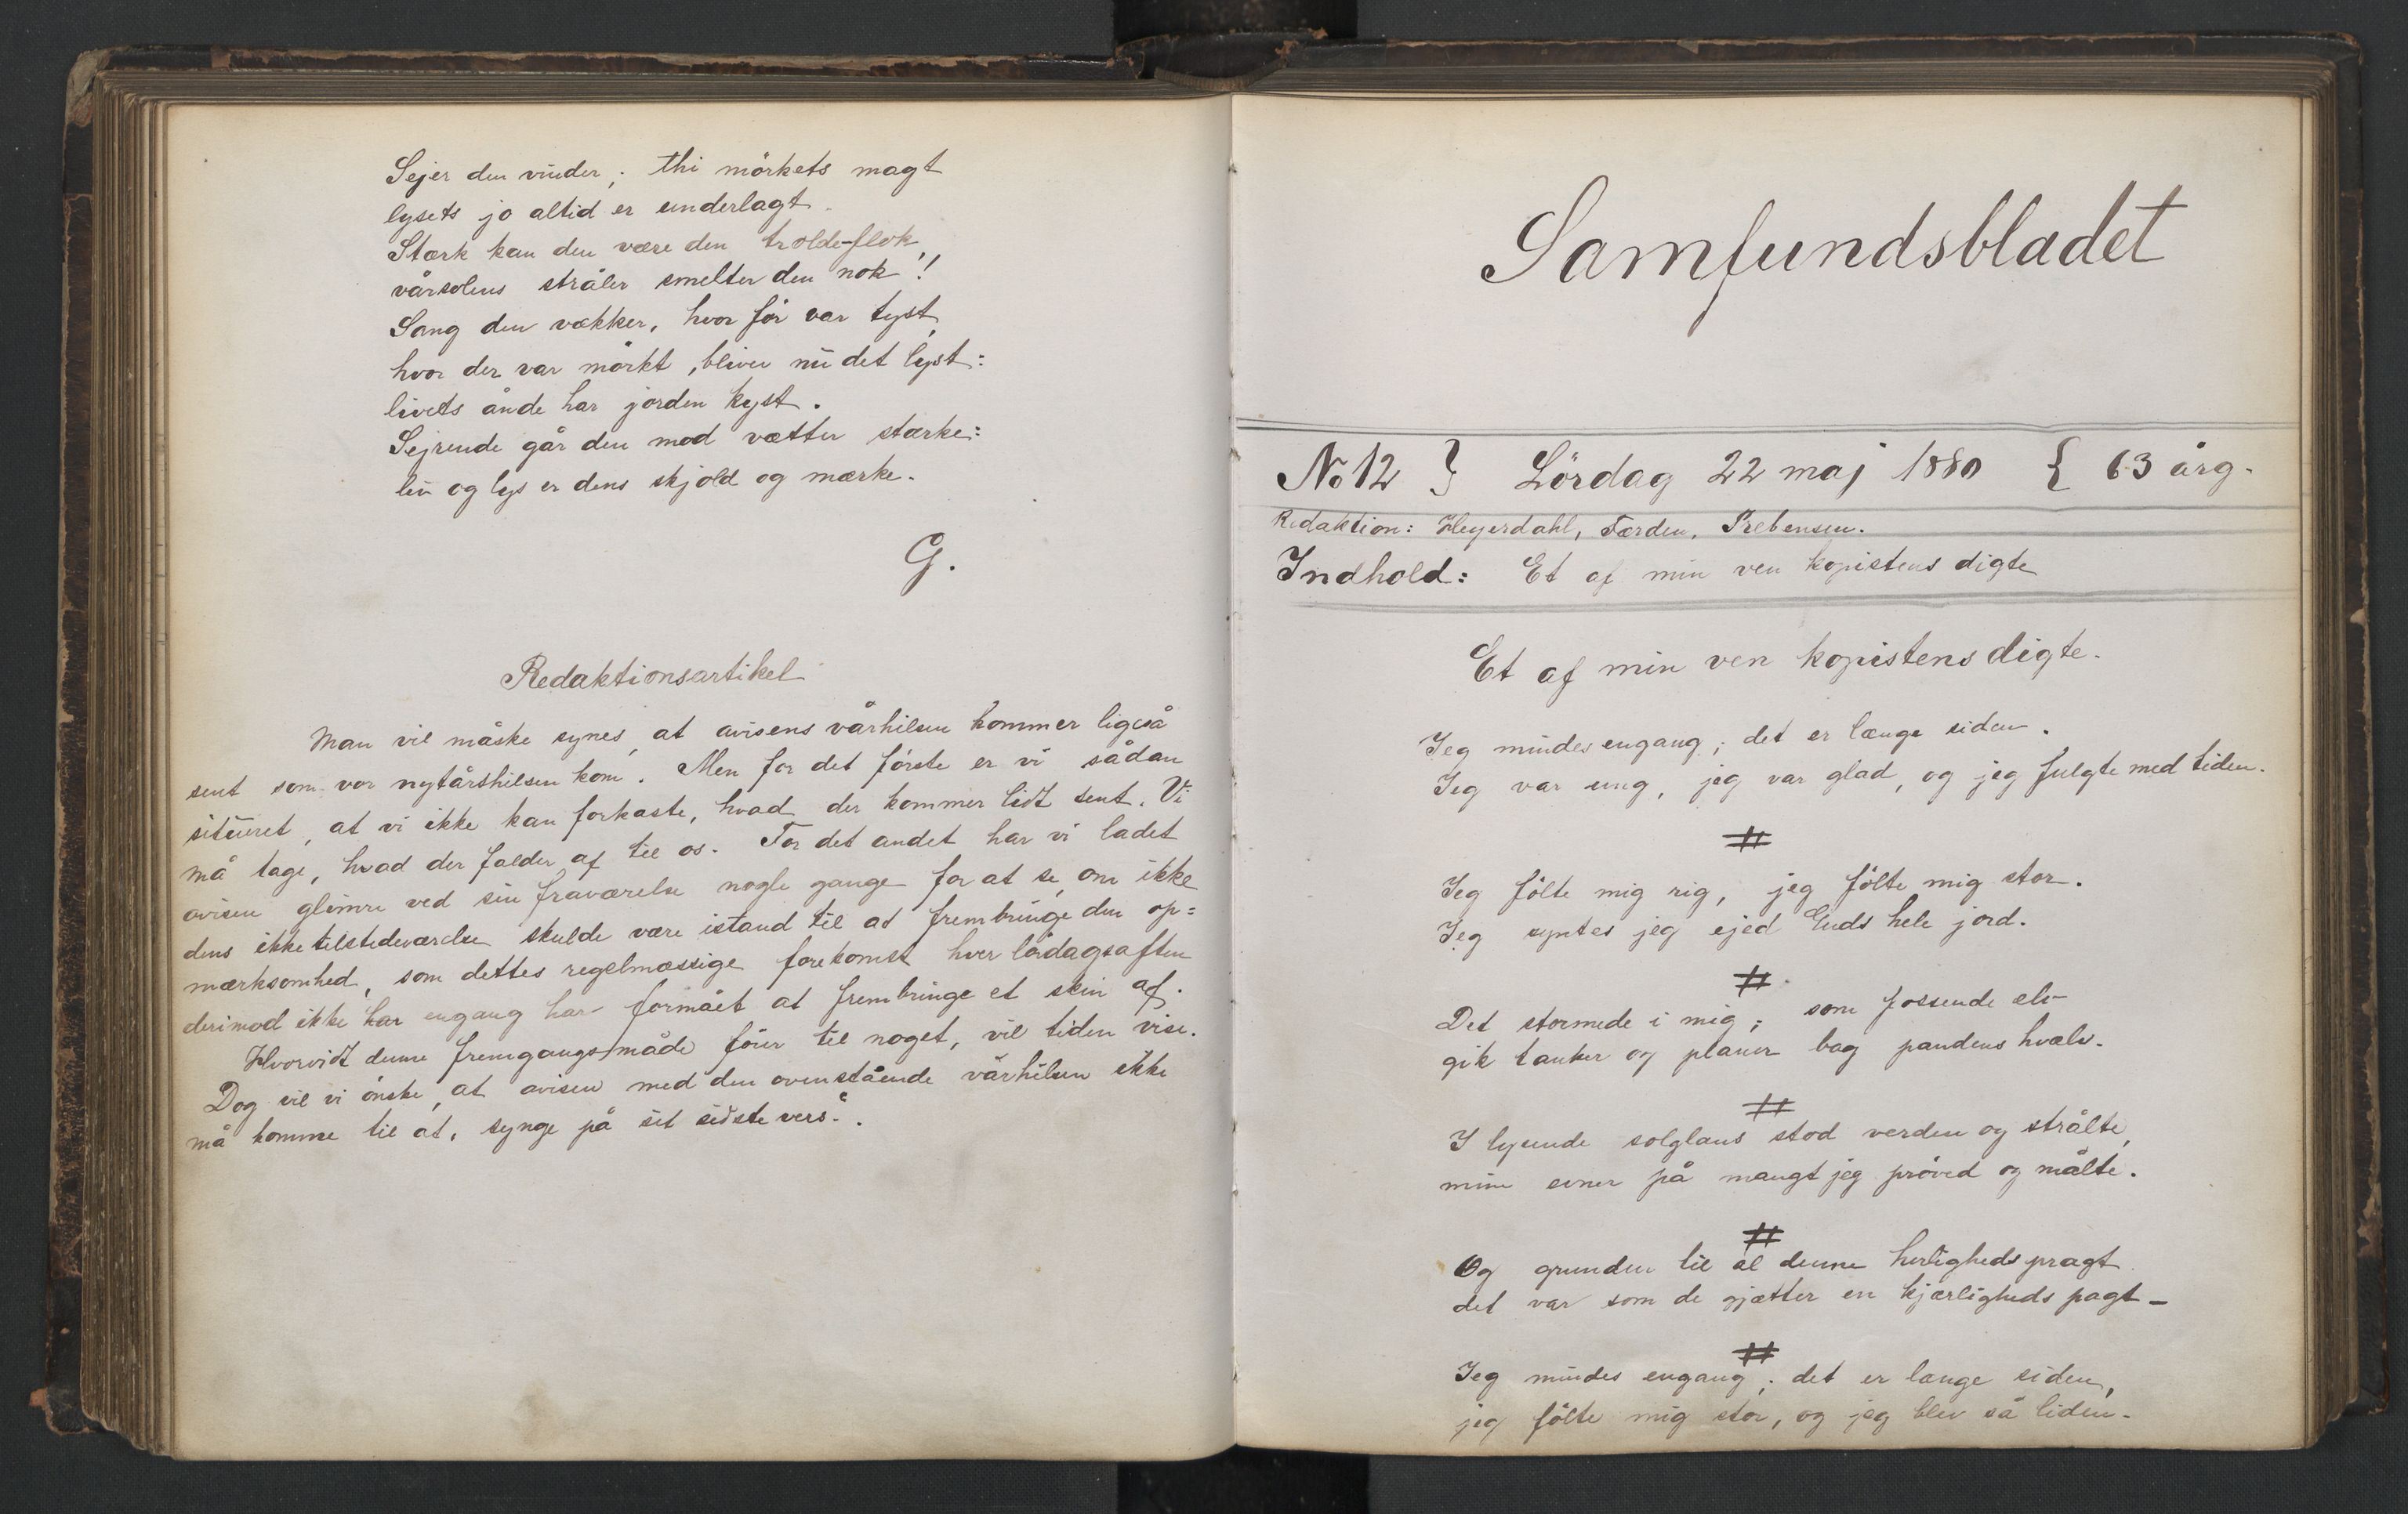 Sejer den vinder; thi mörkets magt
lysets jo altid er underlagt.
Stærk kan den være den trolde-flok,
vårsolens stråler smelter den nok!
Sang den vækker, hvor för var tyst,
hvor der var mörkt, bliver nu det lyst:
livets ånde har jorden kyst.
Sejrende går den mod vætter stærke:
liv og lys er dens skjold og mærke.
G.
Redaktionsartikel
Man vil måske synes, at avisens vårhilsen kommer ligeså
sent som vor nytårshilsen kom. Men for det förste er vi sådan
sitüeret, at vi ikke kan forkaste, hvad der kommer lidt sent. Vi
må tage, hvad der falder af til os. For det andet har vi ladet
avisen glimre ved sin fraværelse nogle gange for at se, om ikke
dens ikke tilstedeværelse skulde være istand til at frembringe den op=
mærksomhed, som dettes regelmæssige forekomst hver lördagsaften
derimod ikke har engang har formået at frembringe et skin af.
Hvorvidt denne fremgangsmåde förer til noget, vil tiden vise.
Dog vil vi önske, at avisen med den ovenstående vårhilsen ikke
må komme til at „synge på sit sidste vers“.
Samfundsbladet
No 12 } Lördag 22 maj 1880 { 63 årg.
Redaktion: Heyerdahl, Færden, Prebensen.
Indhold: Et af min ven kopistens digte
Et af min ven kopistens digte.
Jeg mindes engang; det er længe siden.
Jeg var ung, jeg var glad, og jeg fulgte med tiden.
#
Jeg fölte mig rig, jeg fölte mig stor.
Jeg syntes jeg ejed Guds hele jord.
#
Det stormede i mig; som fossende elv
gik tanker og planer bag pandens hvælv.
#
I lysende solglans stod verden og strålte,
mine evner på mangt jeg pröved og målte.
#
Og grunden til al denne herligheds pragt
det var som de gjætter en kjærligheds pagt –
#
Jeg mindes engang; det er længe siden,
jeg fölte mig stor, og jeg blev så liden.